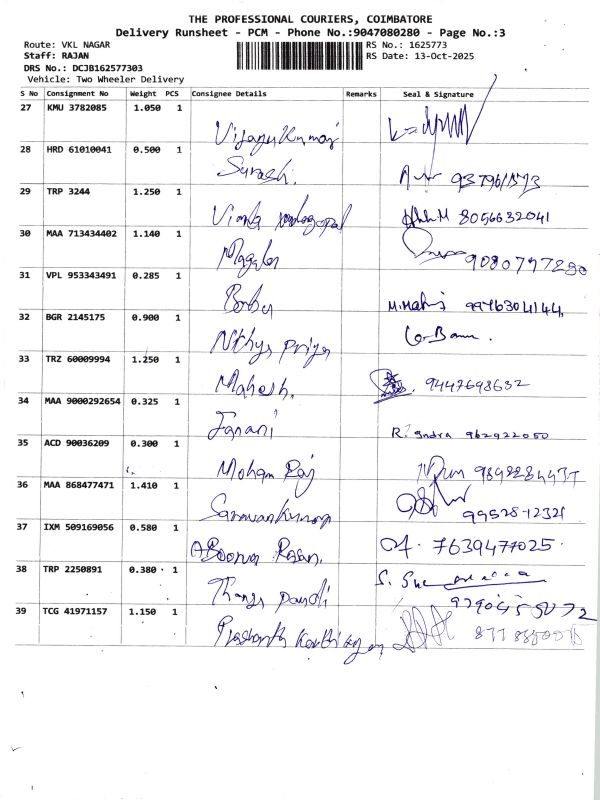 THE PROFESSIONAL COURIERS, COIMBATORE
Delivery Runsheet - PCM - Phone No.:9047080280 - Page No.:3
Route: VKL NAGAR RS No.: 1625773
Staff: RAJAN RS Date: 13-Oct-2025
DRS No.: DCJB162577303
Vehicle: Two Wheeler Delivery
S No Consignment No Weight PCS Consignee Details Remarks Seal & Signature
27 KMU 3782085 1.050 1
Vijayukumar
28 HRD 61010041 0.500 1
Suresh.
29 TRP 3244 1.250 1
Vimla 8056632041
30 MAA 713434402 1.140 1
9080797280
31 VPL 953343491 0.285 1
Babu 9976304144,
32 BGR 2145175 0.900 1
Nithya priya
33 TRZ 60009994 1.250 1
Mahesh. 9447698632
34 MAA 9000292654 0.325 1
Janani R. Indra 962922050
35 ACD 90036209 0.300 1
Mohan Raj
36 MAA 868477471 1.410 1
Saravankumar 99528-12321
37 IXM 509169056 0.580 1
7639477025.
38 TRP 2250891 0.380 1
Thanga pandi
39 TCG 41971157 1.150 1
Prashanth